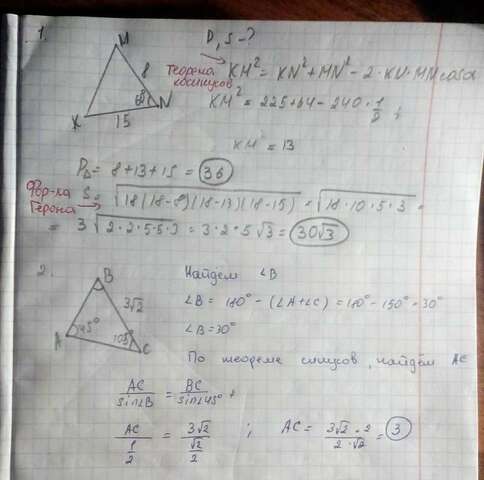 1.
P, S - ?
M
8
60°
K
N
15
Теорема косинусов
KM² = KN² + MN² - 2 · KN · MN cosα
KM² = 225 + 64 - 240 · 1/2 ;
KM = 13
P△ = 8 + 13 + 15 = 36
Фор-ла Герона
S = √18(18-8)(18-13)(18-15) = √18·10·5·3 =
= 3√2·2·5·5·3 = 3·2·5√3 = 30√3
2.
B
3√2
A
45°
105°
C
Найдём ∠B
∠B = 180° - (∠A+∠C) = 180° - 150° = 30°
∠B = 30°
По теореме синусов, найдём AC
AC/sin∠B = BC/sin∠45°
AC/(1/2) = 3√2/(√2/2) ; AC = 3√2 · 2/2 · √2 = 3